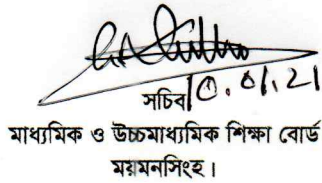 সচিব 10.01.21
মাধ্যমিক ও উচ্চমাধ্যমিক শিক্ষা বোর্ড
ময়মনসিংহ।